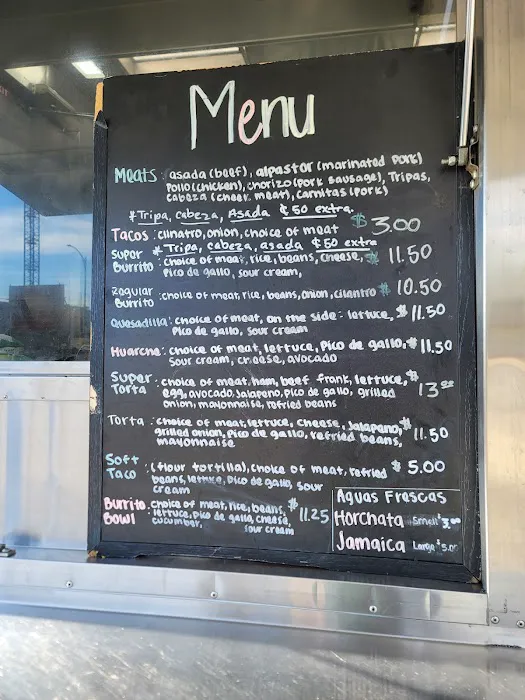 Menu
Meats: asada (beef), alpastor (marinated pork)
Pollo (chicken), chorizo (pork sausage), Tripas,
Cabeza (cheek meat), Carnitas (pork)
*Tripa, Cabeza, Asada $.50 extra.
Tacos: cilnatro, onion, choice of meat $3.00
*Tripa, Cabeza, asada $.50 extra
Super Burrito: choice of meat, rice, beans, cheese, $11.50
Pico de gallo, sour cream,
Regular Burrito: choice of meat, rice, beans, onion, cilantro $10.50
Quesadilla: choice of meat, on the side: lettuce, $11.50
Pico de gallo, sour cream
Huarche: choice of meat, lettuce, Pico de gallo, $11.50
sour cream, cheese, avocado
Super Torta: choice of meat, ham, beef frank, lettuce, $13.00
egg, avocado, Jalapeno, Pico de gallo, grilled
onion, mayonnaise, refried beans
Torta: choice of meat, lettuce, cheese, Jalapeno, $11.50
grilled onion, Pico de gallo, refried beans,
mayonnaise
Soft Taco: (flour tortilla), choice of meat, refried $5.00
beans, lettuce, Pico de gallo, sour
cream
Burrito Bowl: choice of meat, rice, beans, $11.25
lettuce, Pico de gallo, cheese,
cucumber, sour cream
Aguas Frescas
Horchata Small $3.00
Jamaica Large $5.00